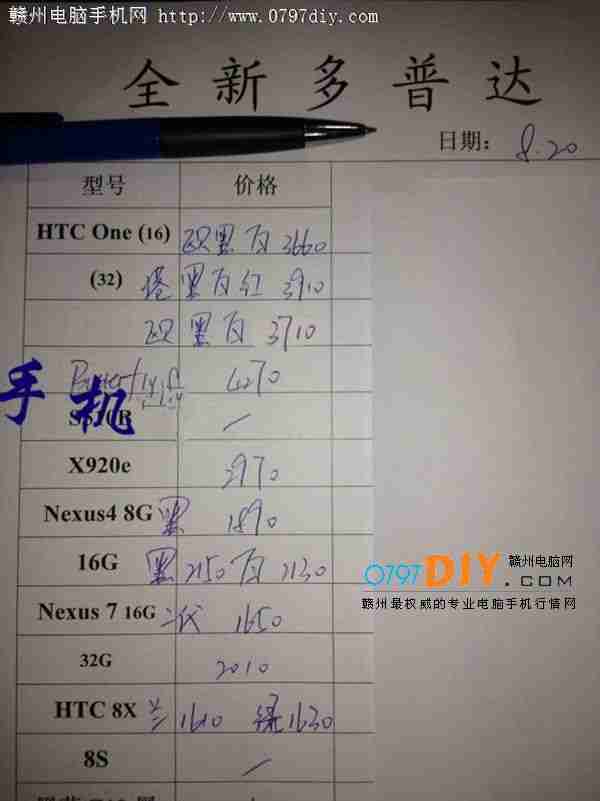 赣州电脑手机网 http://www.0797diy.com
全新多普达
日期： 8.20
型号 价格
HTC One (16) 欧黑白 3660
(32) 港黑白红 3910
欧黑白 3710
Butterfly 4270
手机
X920e 3970
Nexus4 8G 黑 1890
16G 黑 2150 白 2130
Nexus 7 16G 二代 1650
32G 2010
HTC 8X 兰 1610 绿 1630
8S
0797DIY.COM 赣州电脑网
赣州最权威的专业电脑手机行情网